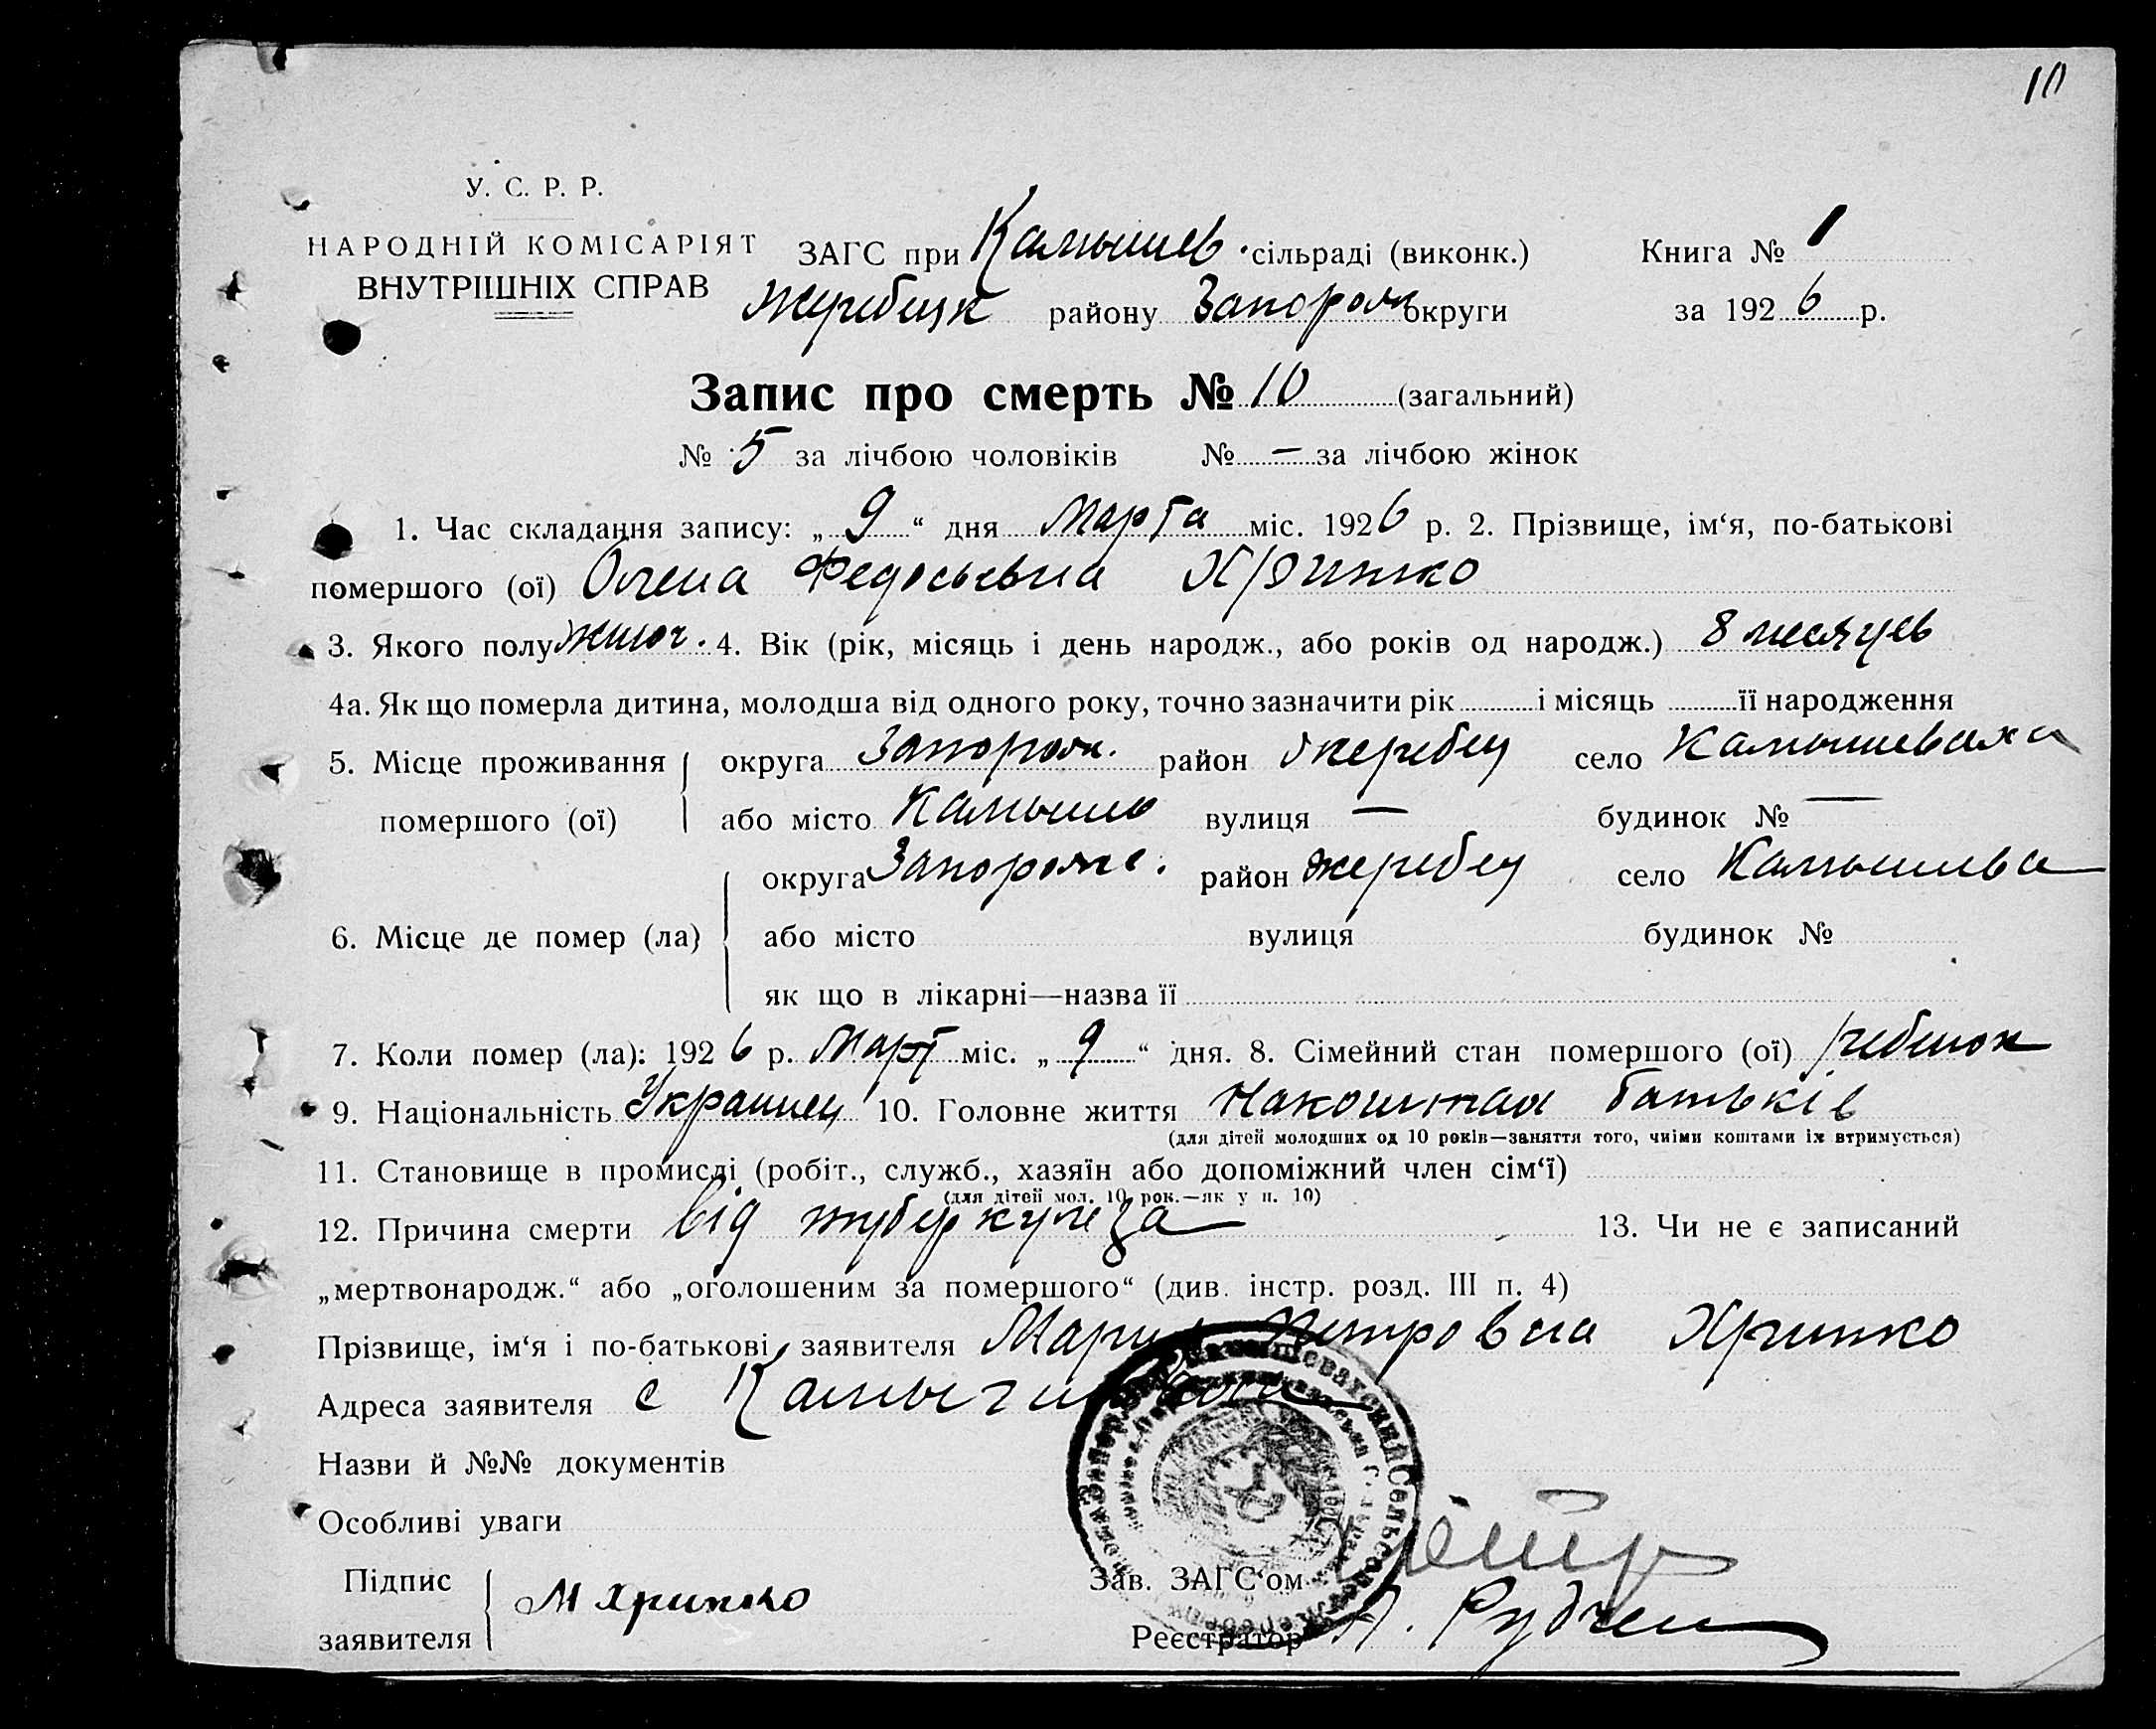 10
У. С. Р. Р.
НАРОДНІЙ КОМІСАРІЯТ
ВНУТРІШНІХ СПРАВ
ЗАГС при Камышев. сільраді (виконк.) Книга № 1
Жеребецк району Запорож округи за 1926 р.
Запис про смерть № 10 (загальний)
№ 5 за лічбою чоловіків № — за лічбою жінок
1. Час складання запису: „9“ дня Марта міс. 1926 р. 2. Прізвище, ім‘я, по-батькові
помершого (ої) Олена Федосьевна Хрипко
3. Якого полу 4. Вік (рік, місяць і день народж., або років од народж.) 8 месяцев
4а. Як що померла дитина, молодша від одного року, точно зазначити рік і місяць її народження
5. Місце проживання округа Запорож. район Жеребец село Камышеваха
помершого (ої) або місто Камыш вулиця — будинок № —
округа Запорож. район жеребец село Камышева
6. Місце де помер (ла) або місто вулиця будинок №
як що в лікарні—назва її
7. Коли помер (ла): 1926 р. Март міс. „9“ дня. 8. Сімейний стан помершого (ої) ребенок
9. Національність Украинец 10. Головне життя На коштах батьків
(для дітей молодших од 10 років—заняття того, чиїми коштами їх втримується)
11. Становище в промислі (робіт., служб., хазяїн або допоміжний член сім‘ї)
(для дітей мол. 10 рок.—як у п. 10)
12. Причина смерти від туберкулеза 13. Чи не є записаний
„мертвонародж.“ або „оголошеним за помершого“ (див. інстр. розд. III п. 4)
Прізвище, ім‘я і по-батькові заявителя Мария Петровна Хрипко
Адреса заявителя с Камышеваха
Назви й №№ документів
Особливі уваги
Підпис
заявителя М Хрипко
Зав. ЗАГС‘ом
Реєстратор А. Рудчен